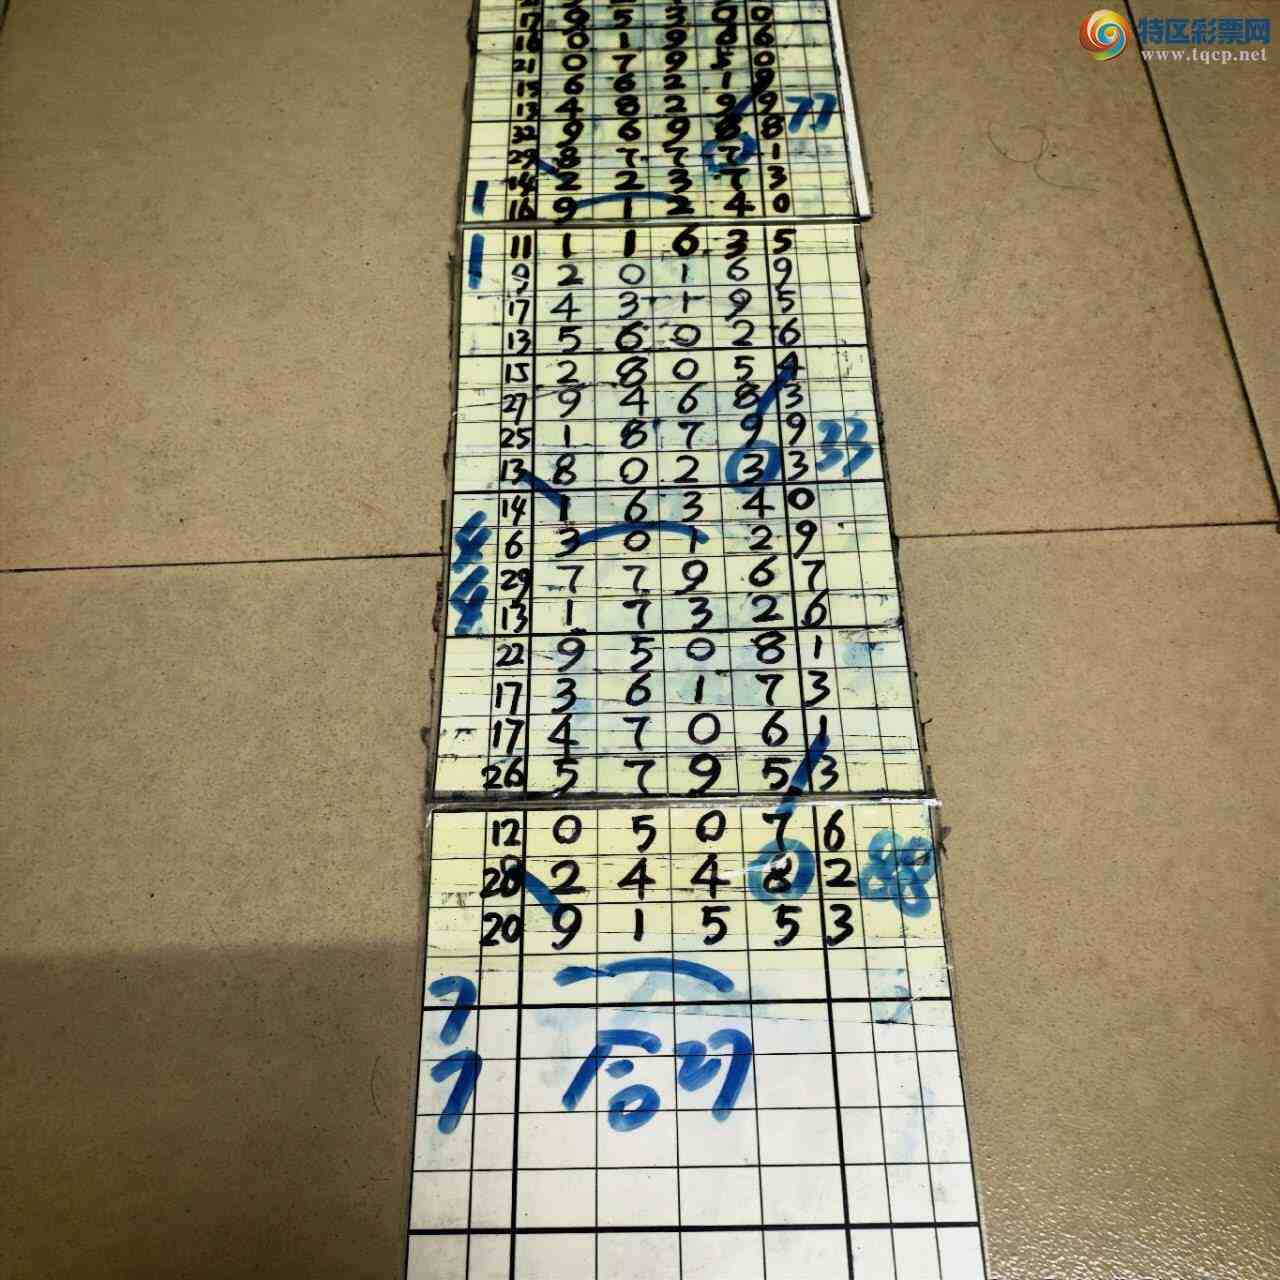 特区彩票网
www.tqcp.net
17 9 5 3 0 0
16 0 1 9 6 6
21 0 7 9 5 0
15 6 6 2 1 9
13 4 8 2 9 9 77
32 9 6 9 8 8
29 8 7 7 7 1
14 2 2 3 7 3
1 16 9 1 2 4 0
1 11 1 1 6 3 5
9 2 0 1 6 9
17 4 3 1 9 5
13 5 6 0 2 6
15 2 8 0 5 4
27 9 4 6 8 3
25 1 8 7 9 9 33
13 8 0 2 3 3
14 1 6 3 4 0
4 6 3 0 1 2 9
4 29 7 7 9 6 7
4 13 1 7 3 2 6
22 9 5 0 8 1
17 3 6 1 7 3
17 4 7 0 6 1
26 5 7 9 5 3
12 0 5 0 7 6
28 2 4 4 8 2 88
20 9 1 5 5 3
7
7 合27